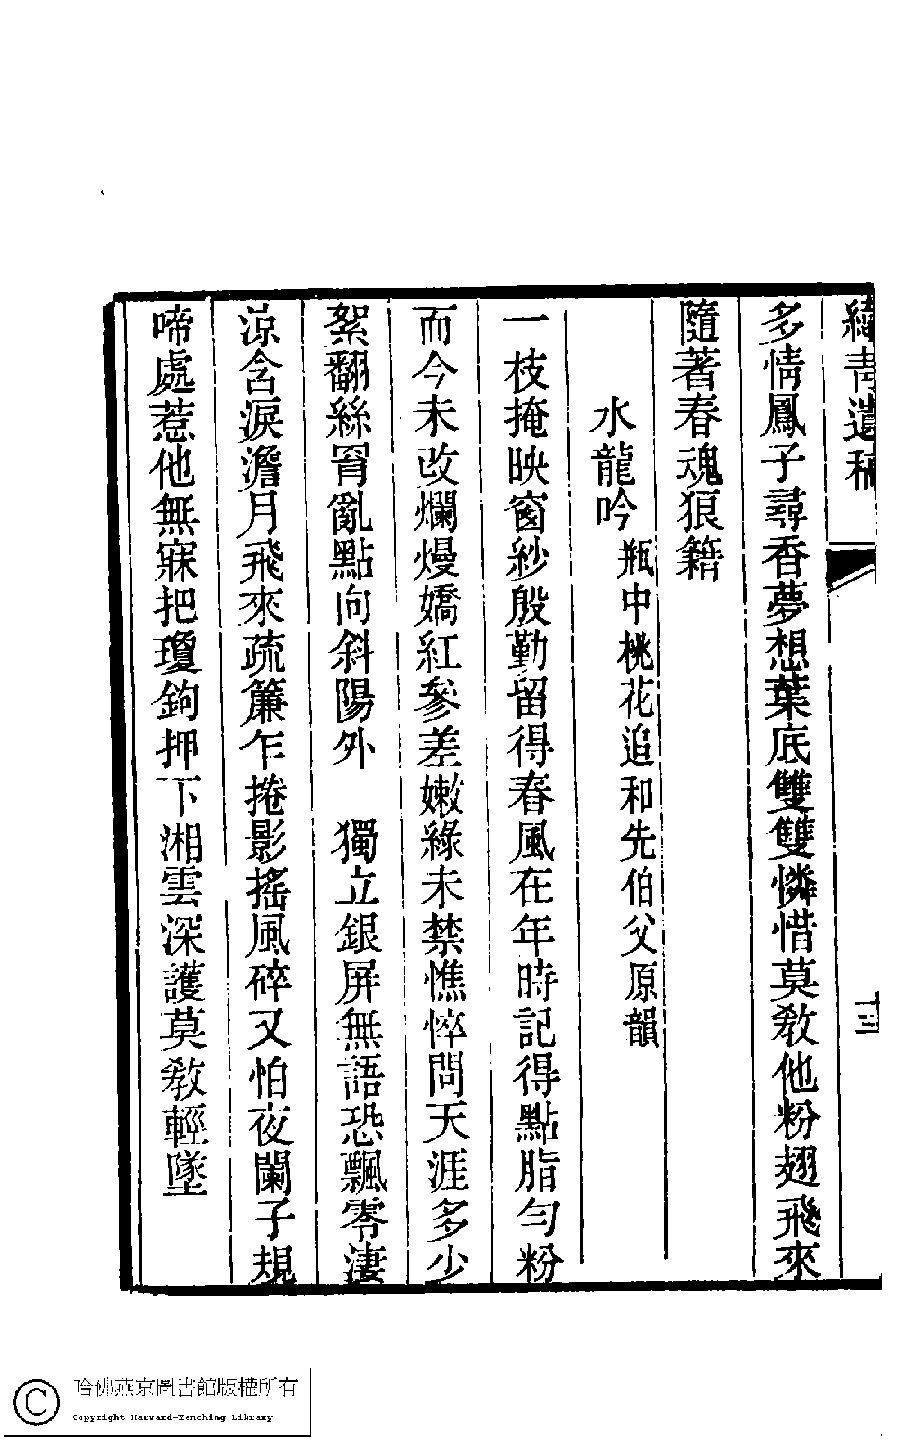 緯青遺稿
十三
多情鳳子尋香夢想葉底雙雙憐惜莫敎他粉翅飛來
隨著春魂狼籍
水龍吟 瓶中桃花追和先伯父原韻
一枝掩映窗紗殷勤留得春風在年時記得點脂勻粉
而今未改爛熳嬌紅參差嫩綠未禁憔悴問天涯多少
絮翻絲罥亂點向斜陽外 獨立銀屏無語恐飄零淒
涼含淚澹月飛來疏簾乍捲影搖風碎又怕夜闌子規
啼處惹他無寐把瓊鉤押下湘雲深護莫敎輕墜
哈佛燕京圖書館版權所有
Copyright Harvard-Yenching Library